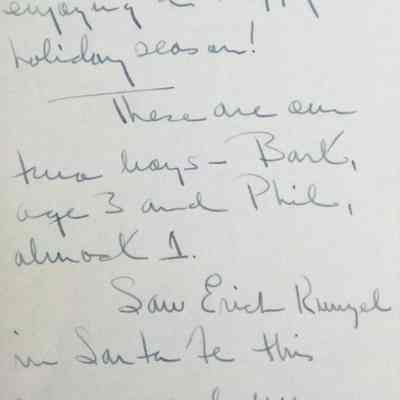 enjoying
holiday season!
These are our
two boys - Bart,
age 3 and Phil,
almost 1.
Saw Erich Kunzel
in Santa Fe this